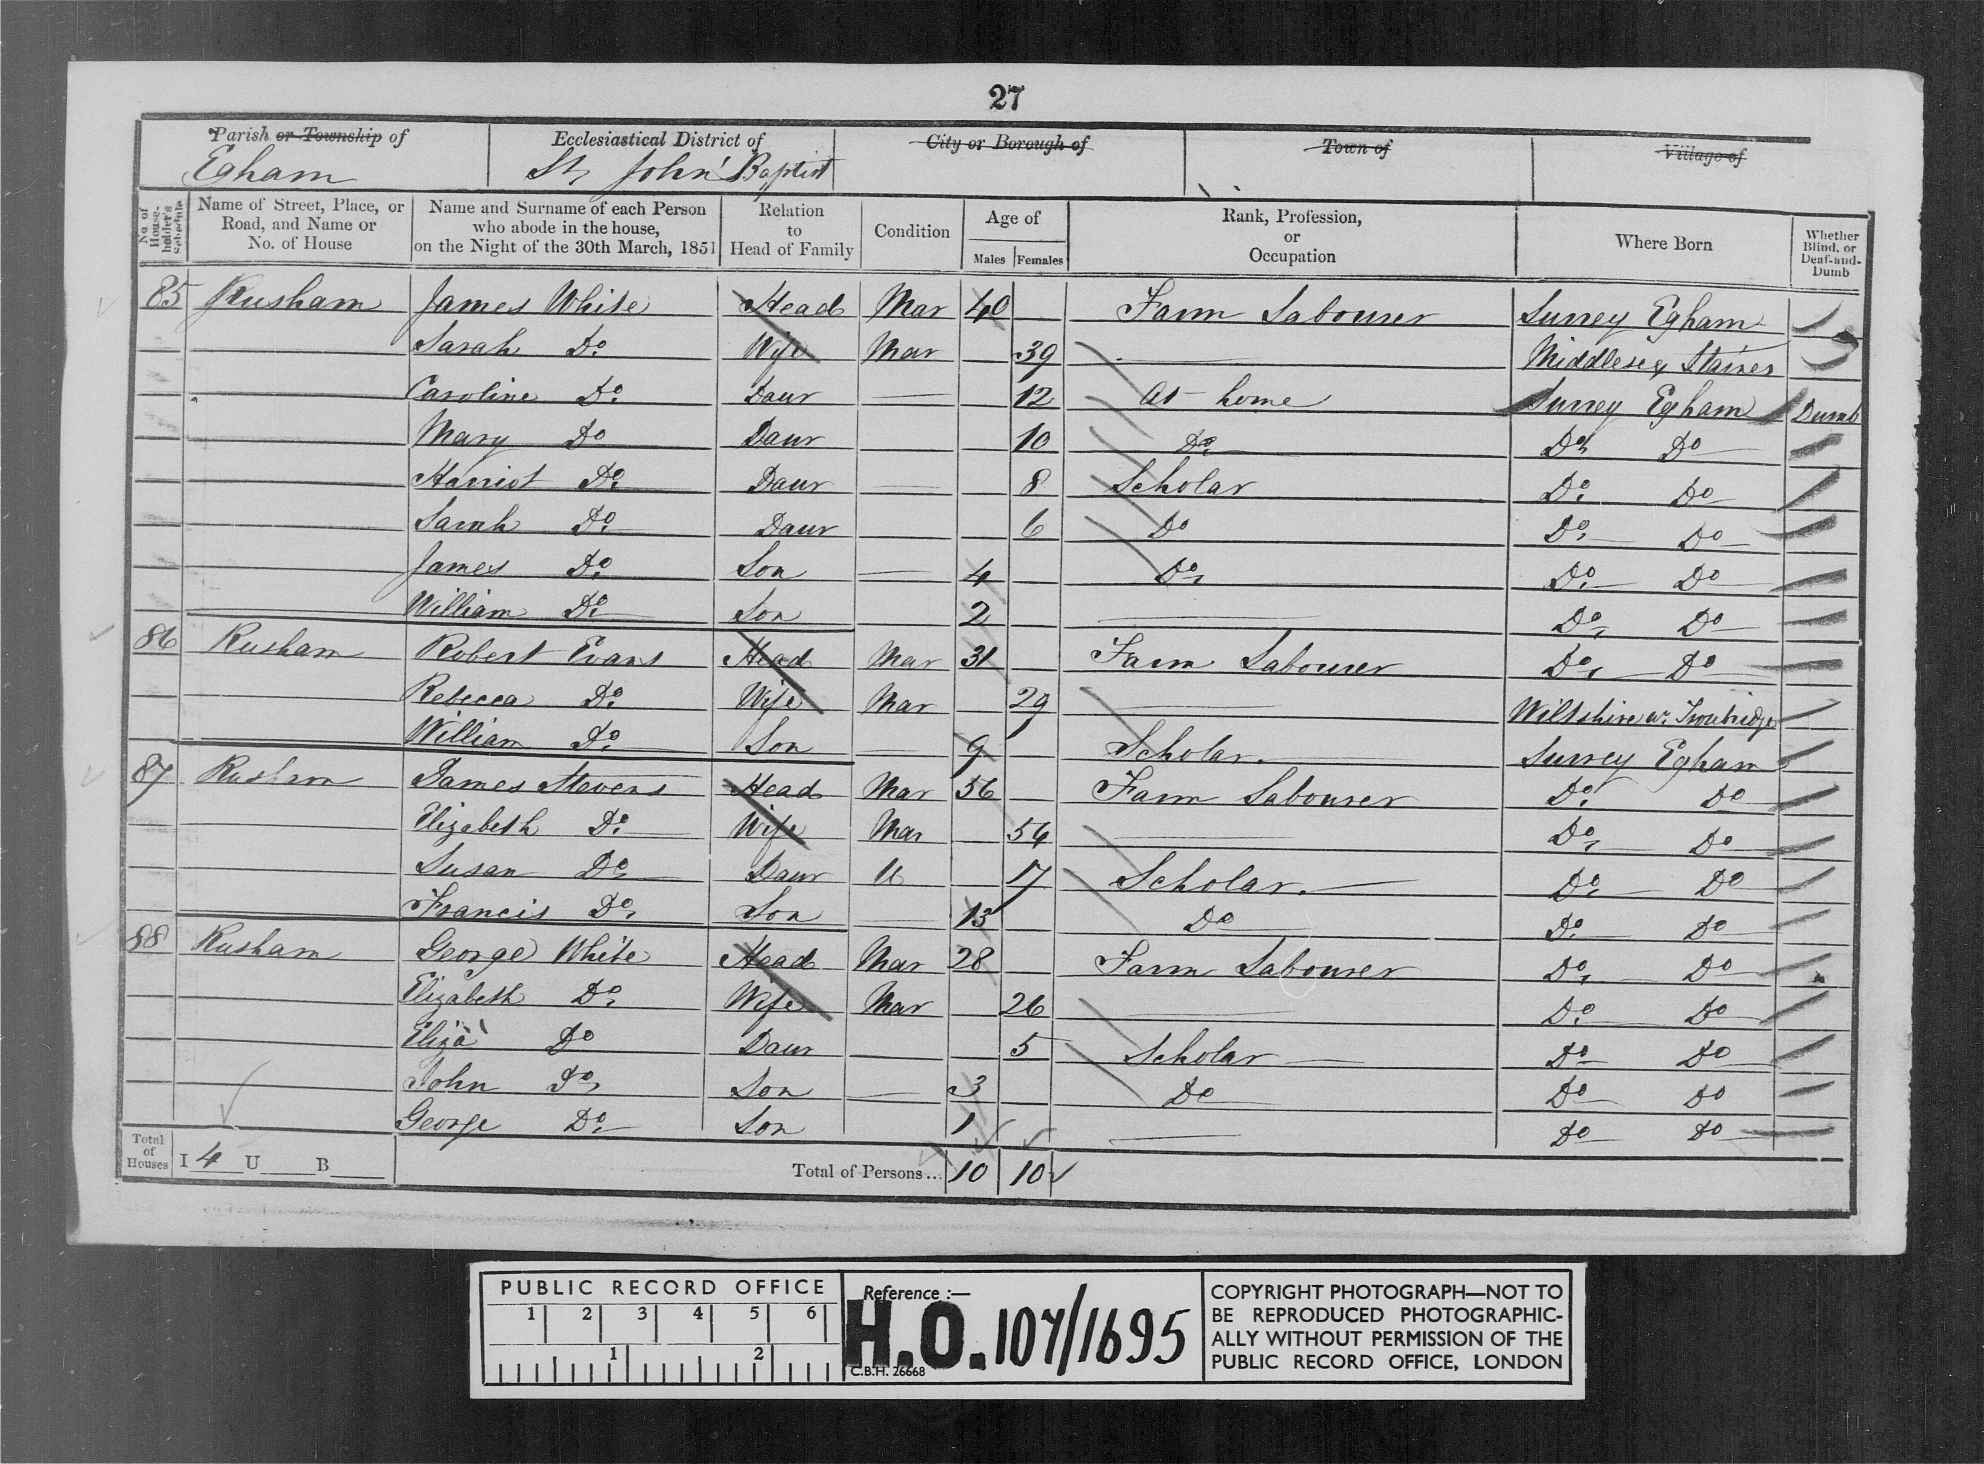 27
Parish or Township of
Ecclesiastical District of
City or Borough of
Town of
Village of
Egham
St John Baptist
No. of House-holder's Schedule
Name of Street, Place, or Road, and Name or No. of House
Name and Surname of each Person who abode in the house, on the Night of the 30th March, 1851
Relation to Head of Family
Condition
Age of
Males
Females
Rank, Profession, or Occupation
Where Born
Whether Blind, or Deaf-and-Dumb
85 Rusham James White Head Mar 40 Farm Labourer Surrey Egham
Sarah Do. Wife Mar 39 Middlesex Staines
Caroline Do. Daur 12 At home Surrey Egham Dumb
Mary Do Daur 10 Do. Do. Do
Harriot Do. Daur 8 Scholar Do. Do
Sarah Do. Daur 6 Do Do. Do
James Do. Son 4 Do. Do. Do
William Do. Son 2 Do. Do
86 Rusham Robert Evans Head Mar 31 Farm Labourer Do. Do
Rebecca Do. Wife Mar 29 Wiltshire nr. Trowbridge
William Do. Son 9 Scholar. Surrey Egham
87 Rusham James Stevens Head Mar 56 Farm Labourer Do. Do
Elizabeth Do. Wife Mar 54 Do. Do
Susan Do. Daur U 17 Scholar. Do. Do
Francis Do. Son 13 Do Do. Do
88 Rusham George White Head Mar 28 Farm Labourer Do. Do
Elizabeth Do. Wife Mar 26 Do. Do
Eliza Do Daur 5 Scholar Do Do
John Do. Son 3 Do Do Do
George Do. Son 1 Do Do
Total of Houses I 4 U B Total of Persons... 10 10
PUBLIC RECORD OFFICE
1 2 3 4 5 6
1 2
Reference :—
H.O. 107/1695
C.B.H. 26668
COPYRIGHT PHOTOGRAPH—NOT TO
BE REPRODUCED PHOTOGRAPHIC-
ALLY WITHOUT PERMISSION OF THE
PUBLIC RECORD OFFICE, LONDON